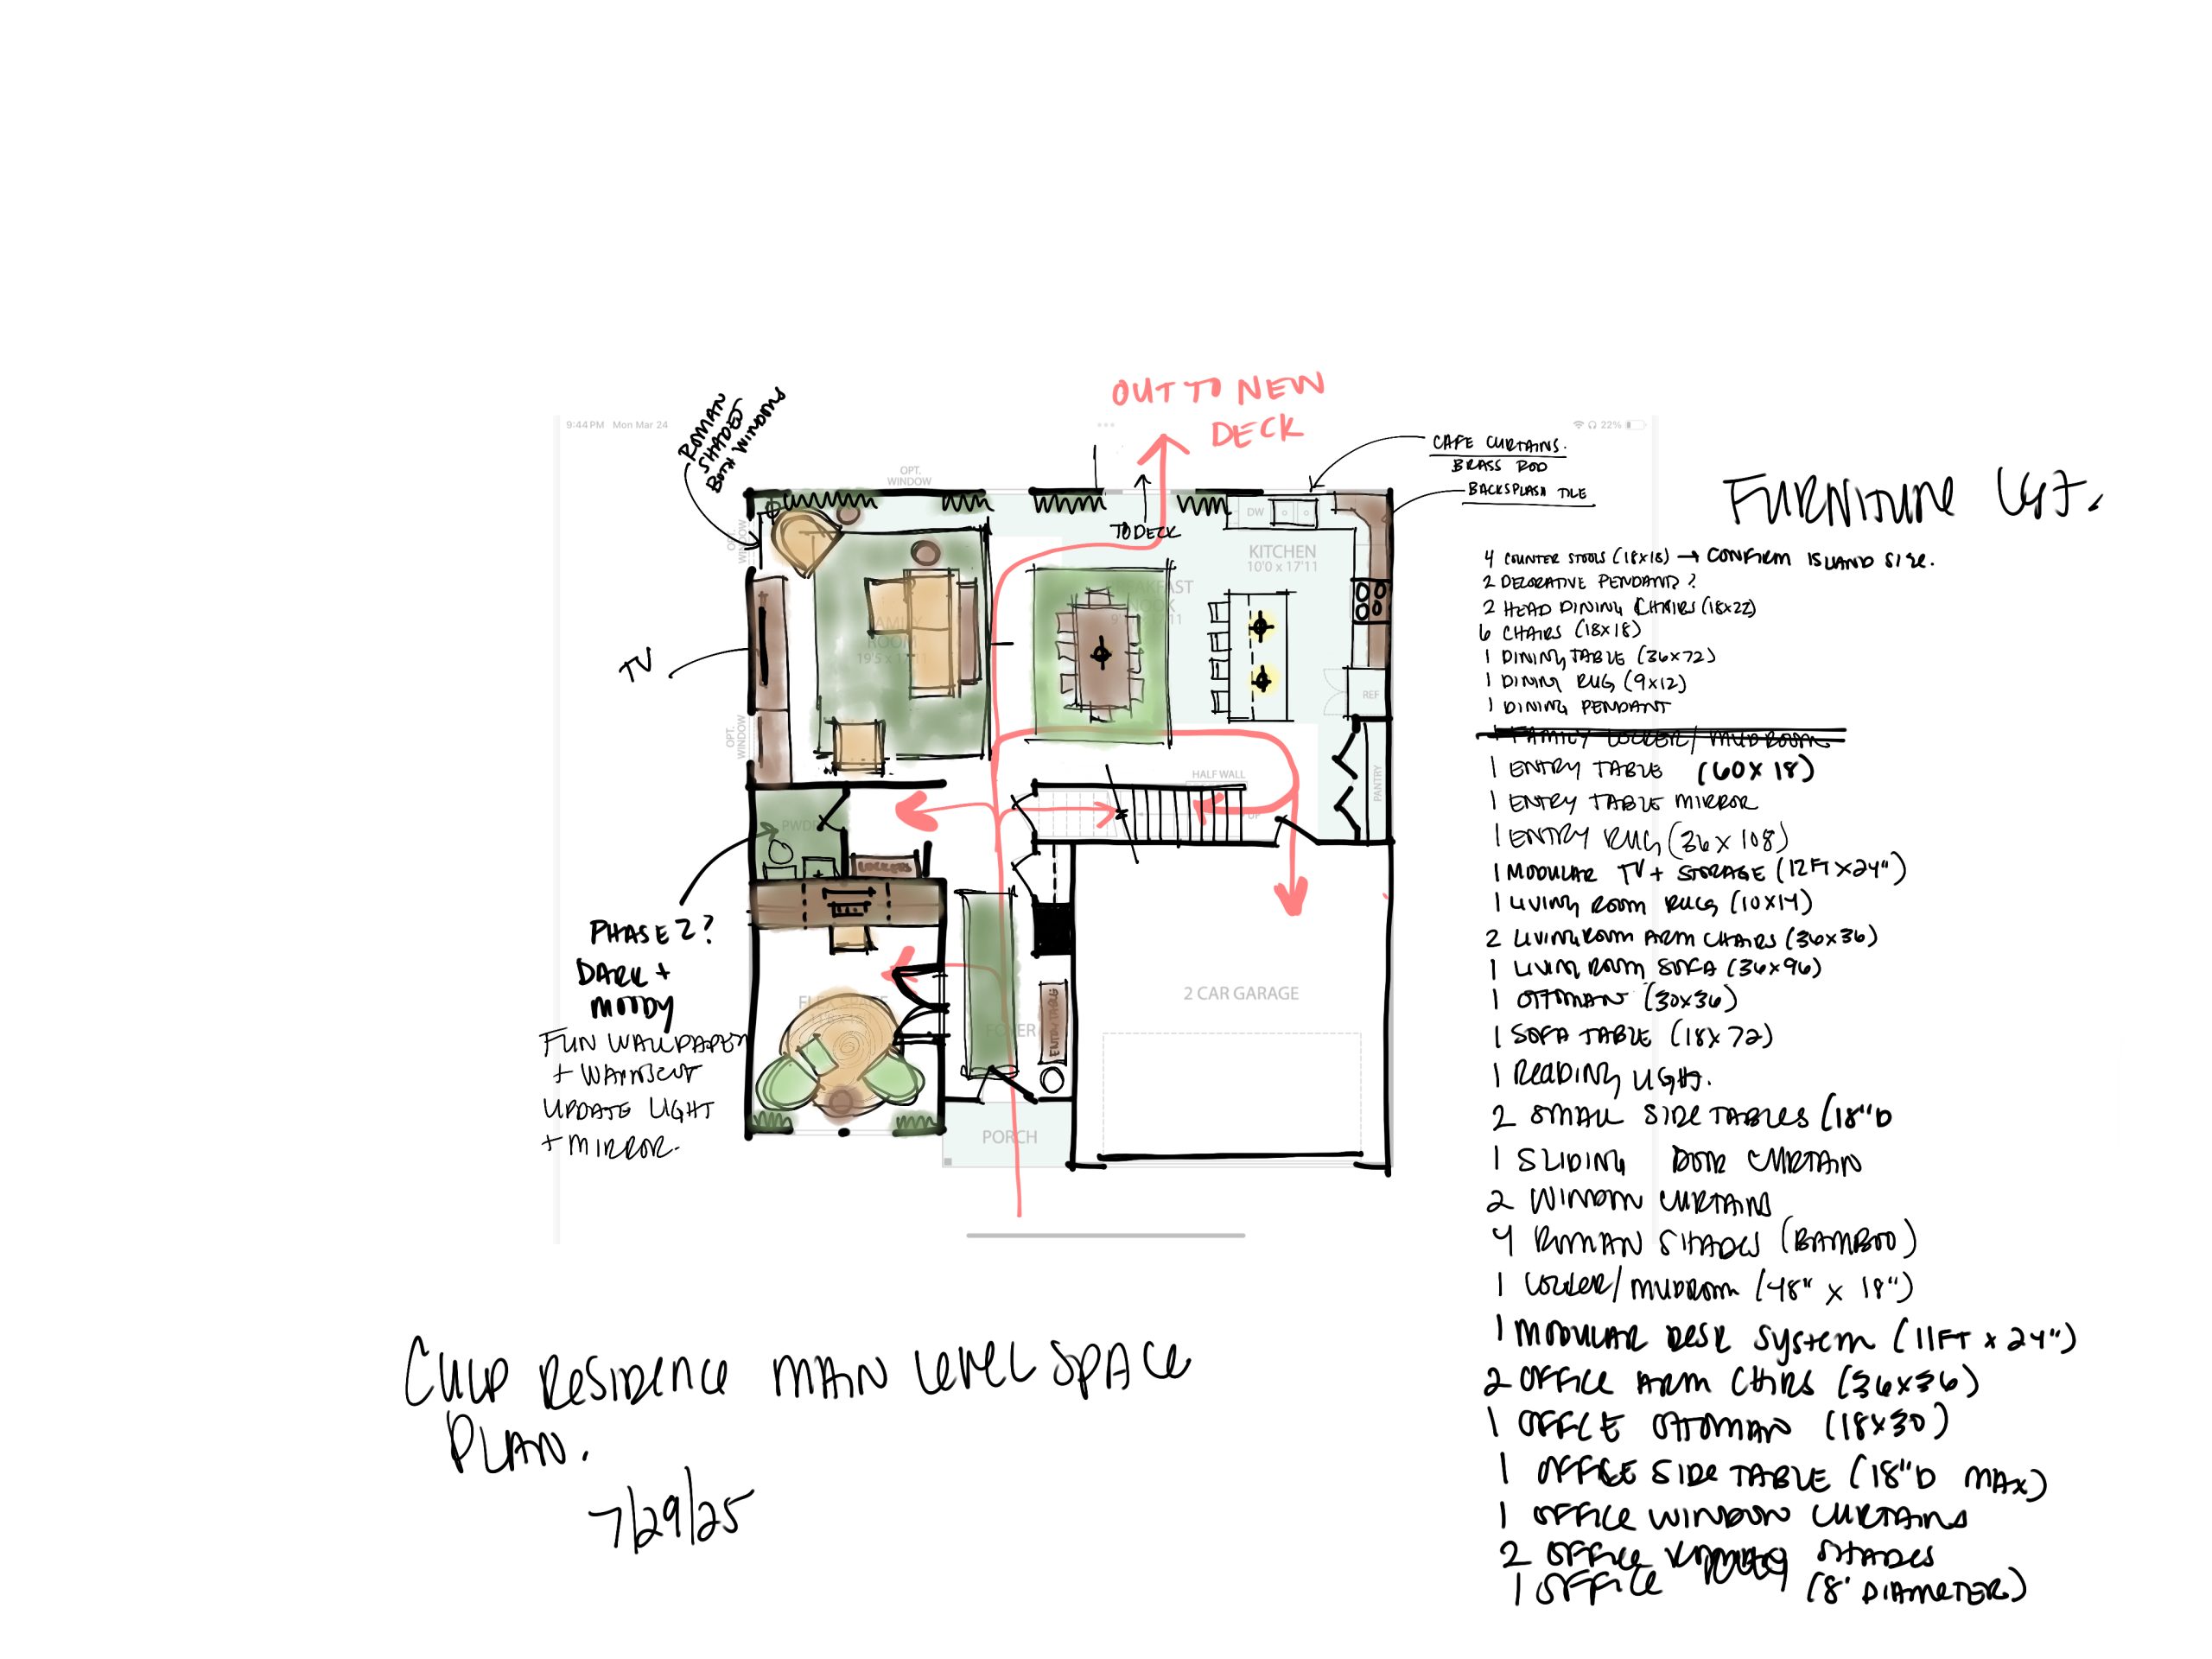 9:44 PM Mon Mar 24
22%
OUT TO NEW
DECK
ROMAN
SHADES
BOTH WINDOWS
OPT.
WINDOW
CAFE CURTAINS.
BRASS ROD
BACKSPLASH TILE
TO DECK
DW
KITCHEN
10'0 x 17'11
OPT.
WINDOW
ROOM
19'5 x 17'11
TV
REF
OPT.
WINDOW
HALF WALL
UP
PANTRY
PWDR
LOCKERS
PHASE 2?
DARK +
MOODY
FUN WALLPAPER
+ WAINSCOT
UPDATE LIGHT
+ MIRROR.
FLEX SPACE
FOYER
ENTRY TABLE
2 CAR GARAGE
PORCH
FURNITURE LIST.
4 COUNTER STOOLS (18x18) → CONFIRM ISLAND SIZE.
2 DECORATIVE PENDANT?
2 HEAD DINING CHAIRS (18x22)
6 CHAIRS (18x18)
1 DINING TABLE (36x72)
1 DINING RUG (9x12)
1 DINING PENDANT
1 FAMILY LOCKER/MUDROOM
1 ENTRY TABLE (60x18)
1 ENTRY TABLE MIRROR
1 ENTRY RUG (36x108)
1 MODULAR TV + STORAGE (12FT x 24")
1 LIVING ROOM RUG (10x14)
2 LIVING ROOM ARM CHAIRS (36x36)
1 LIVING ROOM SOFA (36x96)
1 OTTOMAN (30x36)
1 SOFA TABLE (18x72)
1 READING LIGHT.
2 SMALL SIDE TABLES (18"D
1 SLIDING DOOR CURTAIN
2 WINDOW CURTAINS
4 ROMAN SHADES (BAMBOO)
1 LOCKER/MUDROOM (48" x 18")
1 MODULAR DESK SYSTEM (11FT x 24")
2 OFFICE ARM CHIRS (36x36)
1 OFFICE OTTOMAN (18x30)
1 OFFICE SIDE TABLE (18"D MAX)
1 OFFICE WINDOW CURTAINS
2 OFFICE SHADES
1 OFFICE (8' DIAMETER)
CULP RESIDENCE MAIN LEVEL SPACE
PLAN.
7/29/25